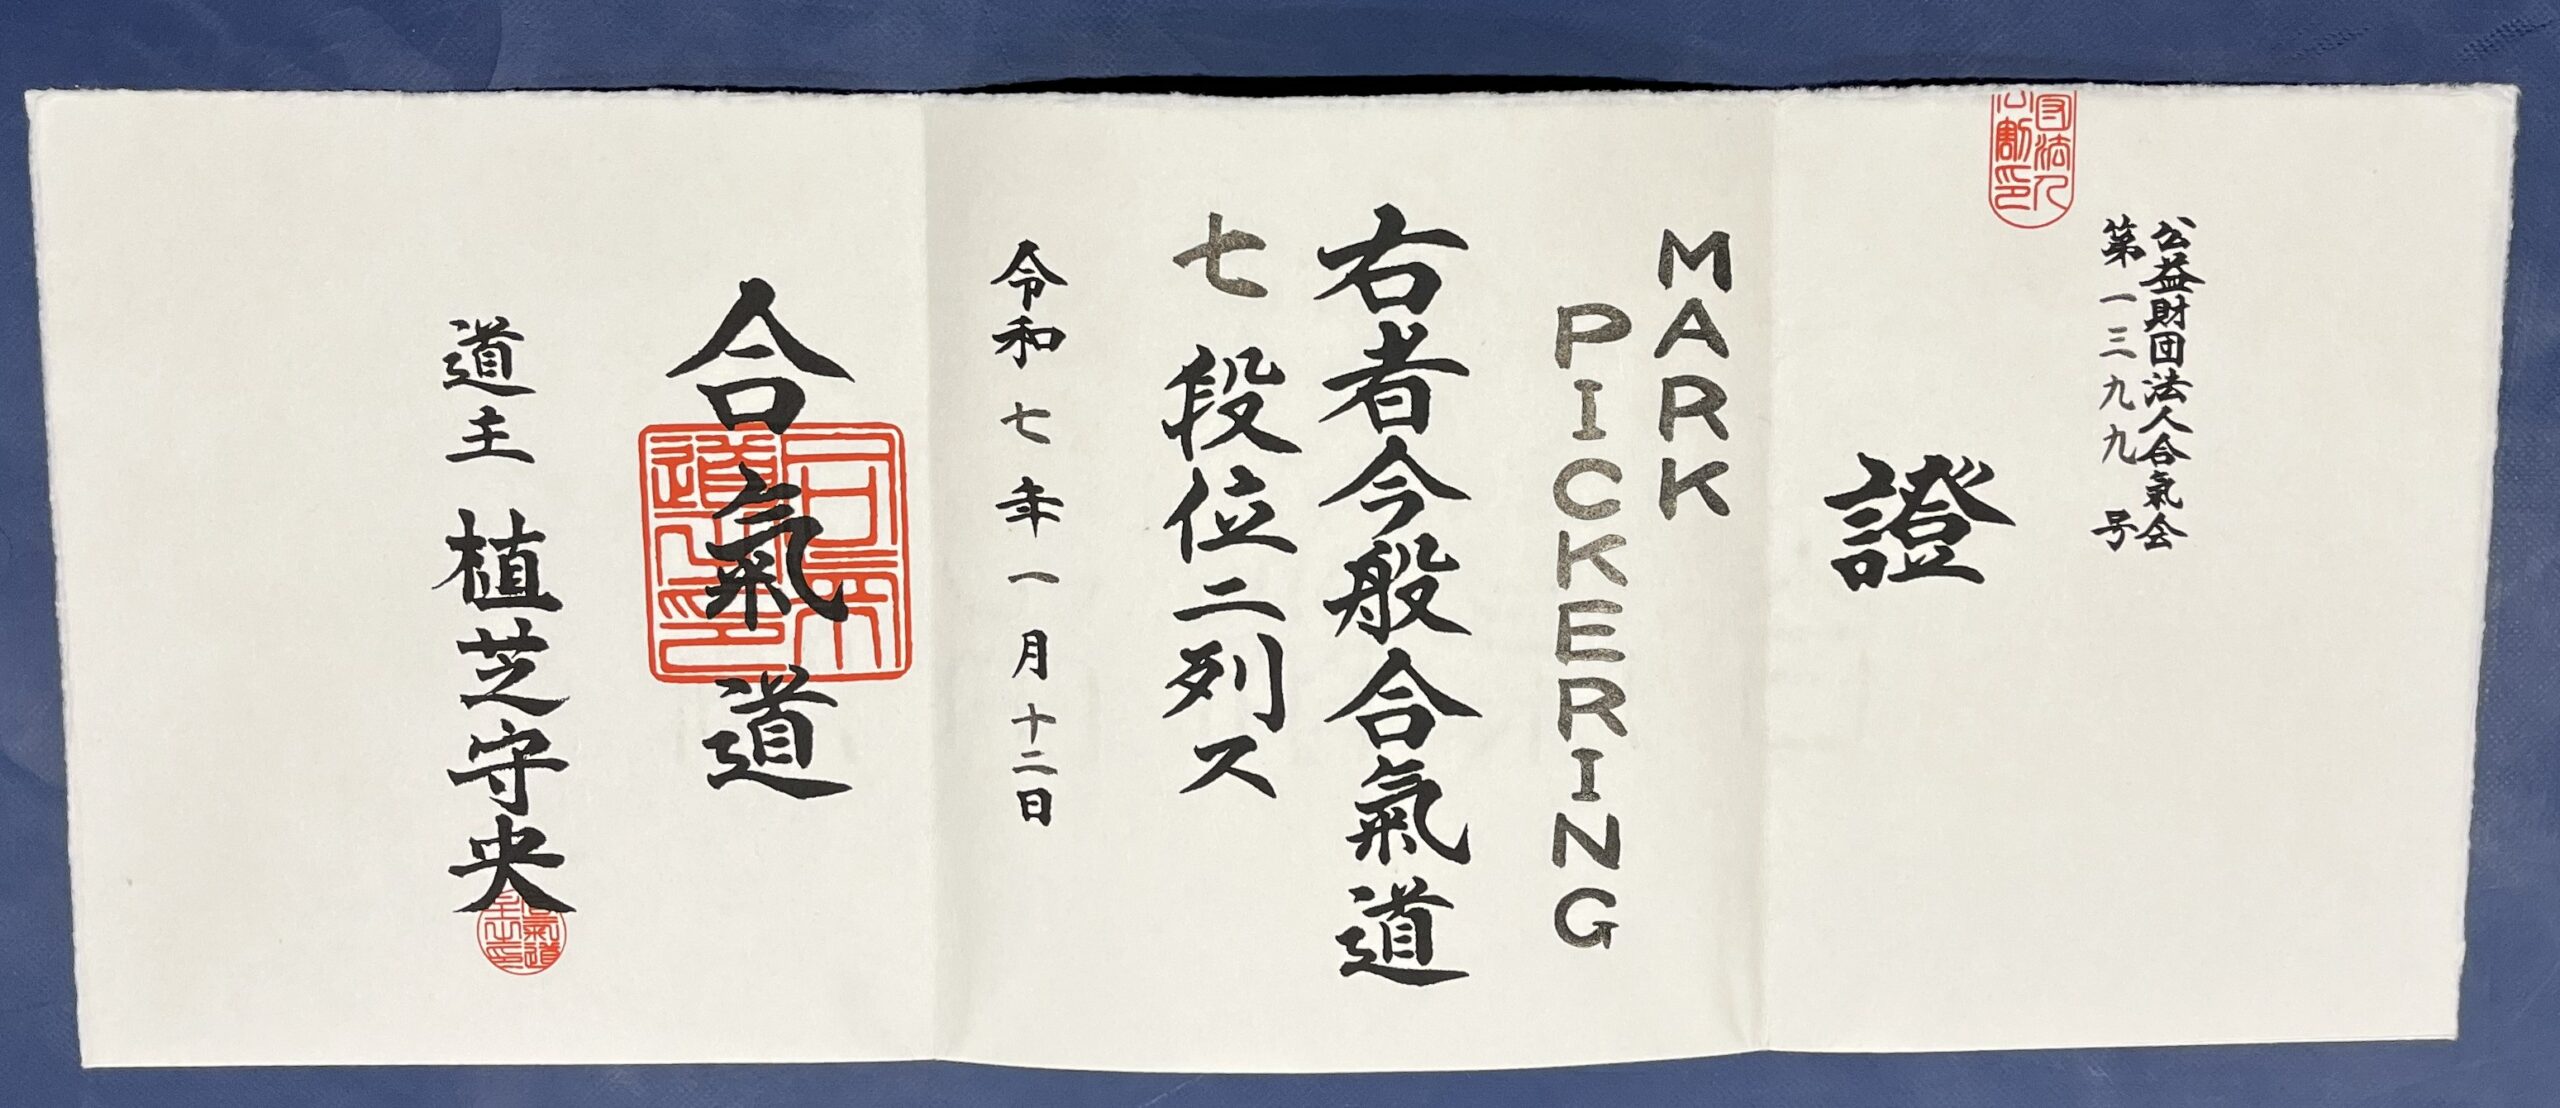 公益財団法人合氣会
第一三九九号
證
MARK
PICKERING
右者今般合氣道
七段位ニ列ス
令和七年一月十二日
合氣道
道主 植芝守央